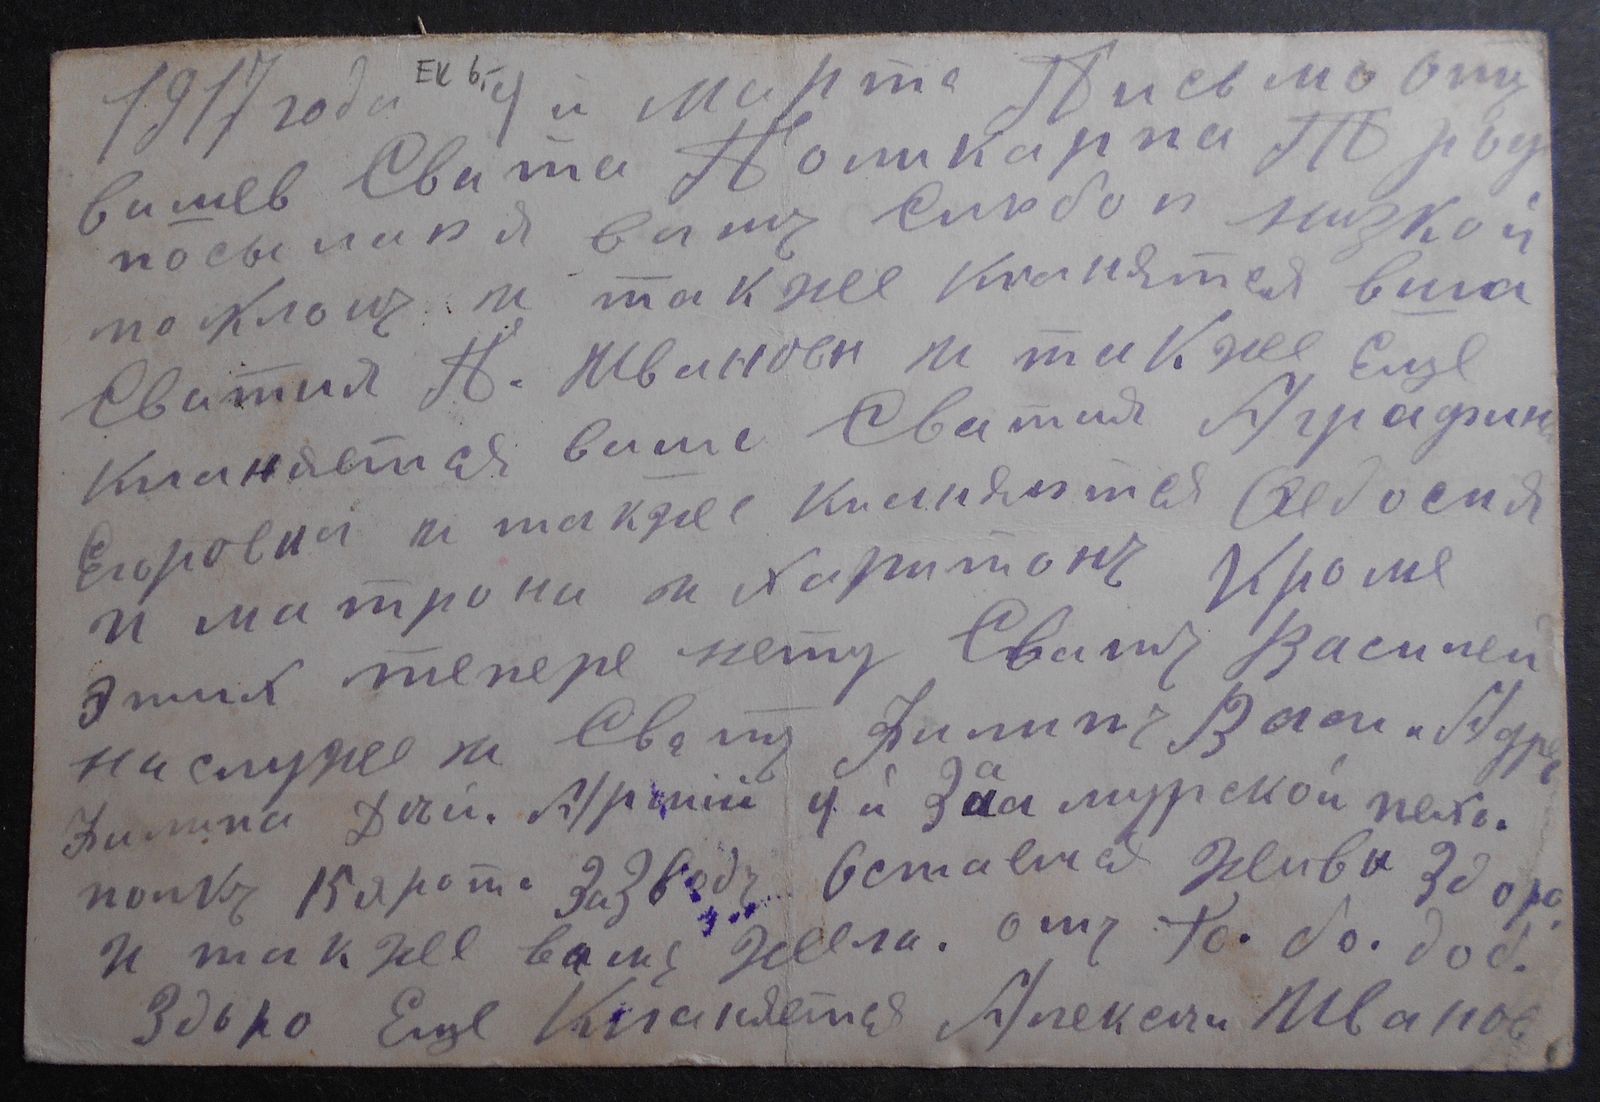 1917 года 4 й марта Письмо отъ
вашев Свата Поликарпа
посылаия вамъ Сиюбои низкой
поклонъ и также кланятся ваша
Сватия П. Ивановн и также Еще
кланяется ваше Сватия Аграфина
Егоровна и также кланяются Федосия
и матрона и харитонъ Кроме
этих тепере нету Сватъ Василей
на службе и Сватъ Филипъ Васи. Адре
Филипа Дей. Армий 4 й Заамурской пехо.
полкъ 15 я рота Взводъ Остаемся живы Здоро.
и также вамъ жела. отъ Го. бо. доб.
Здоро Еще Кланяется Алексей Иванов
EK 6,-